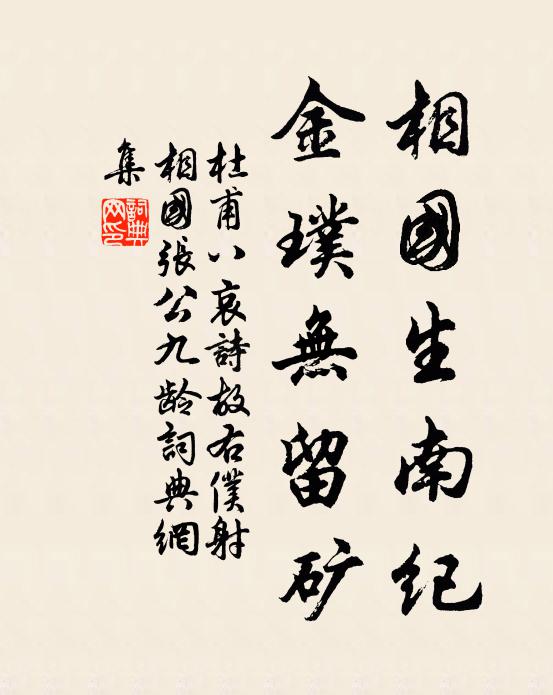 相國生南紀
金璞無留矿
杜甫八哀詩故右僕射
相國張公九龄詞典網
集
詞典網印